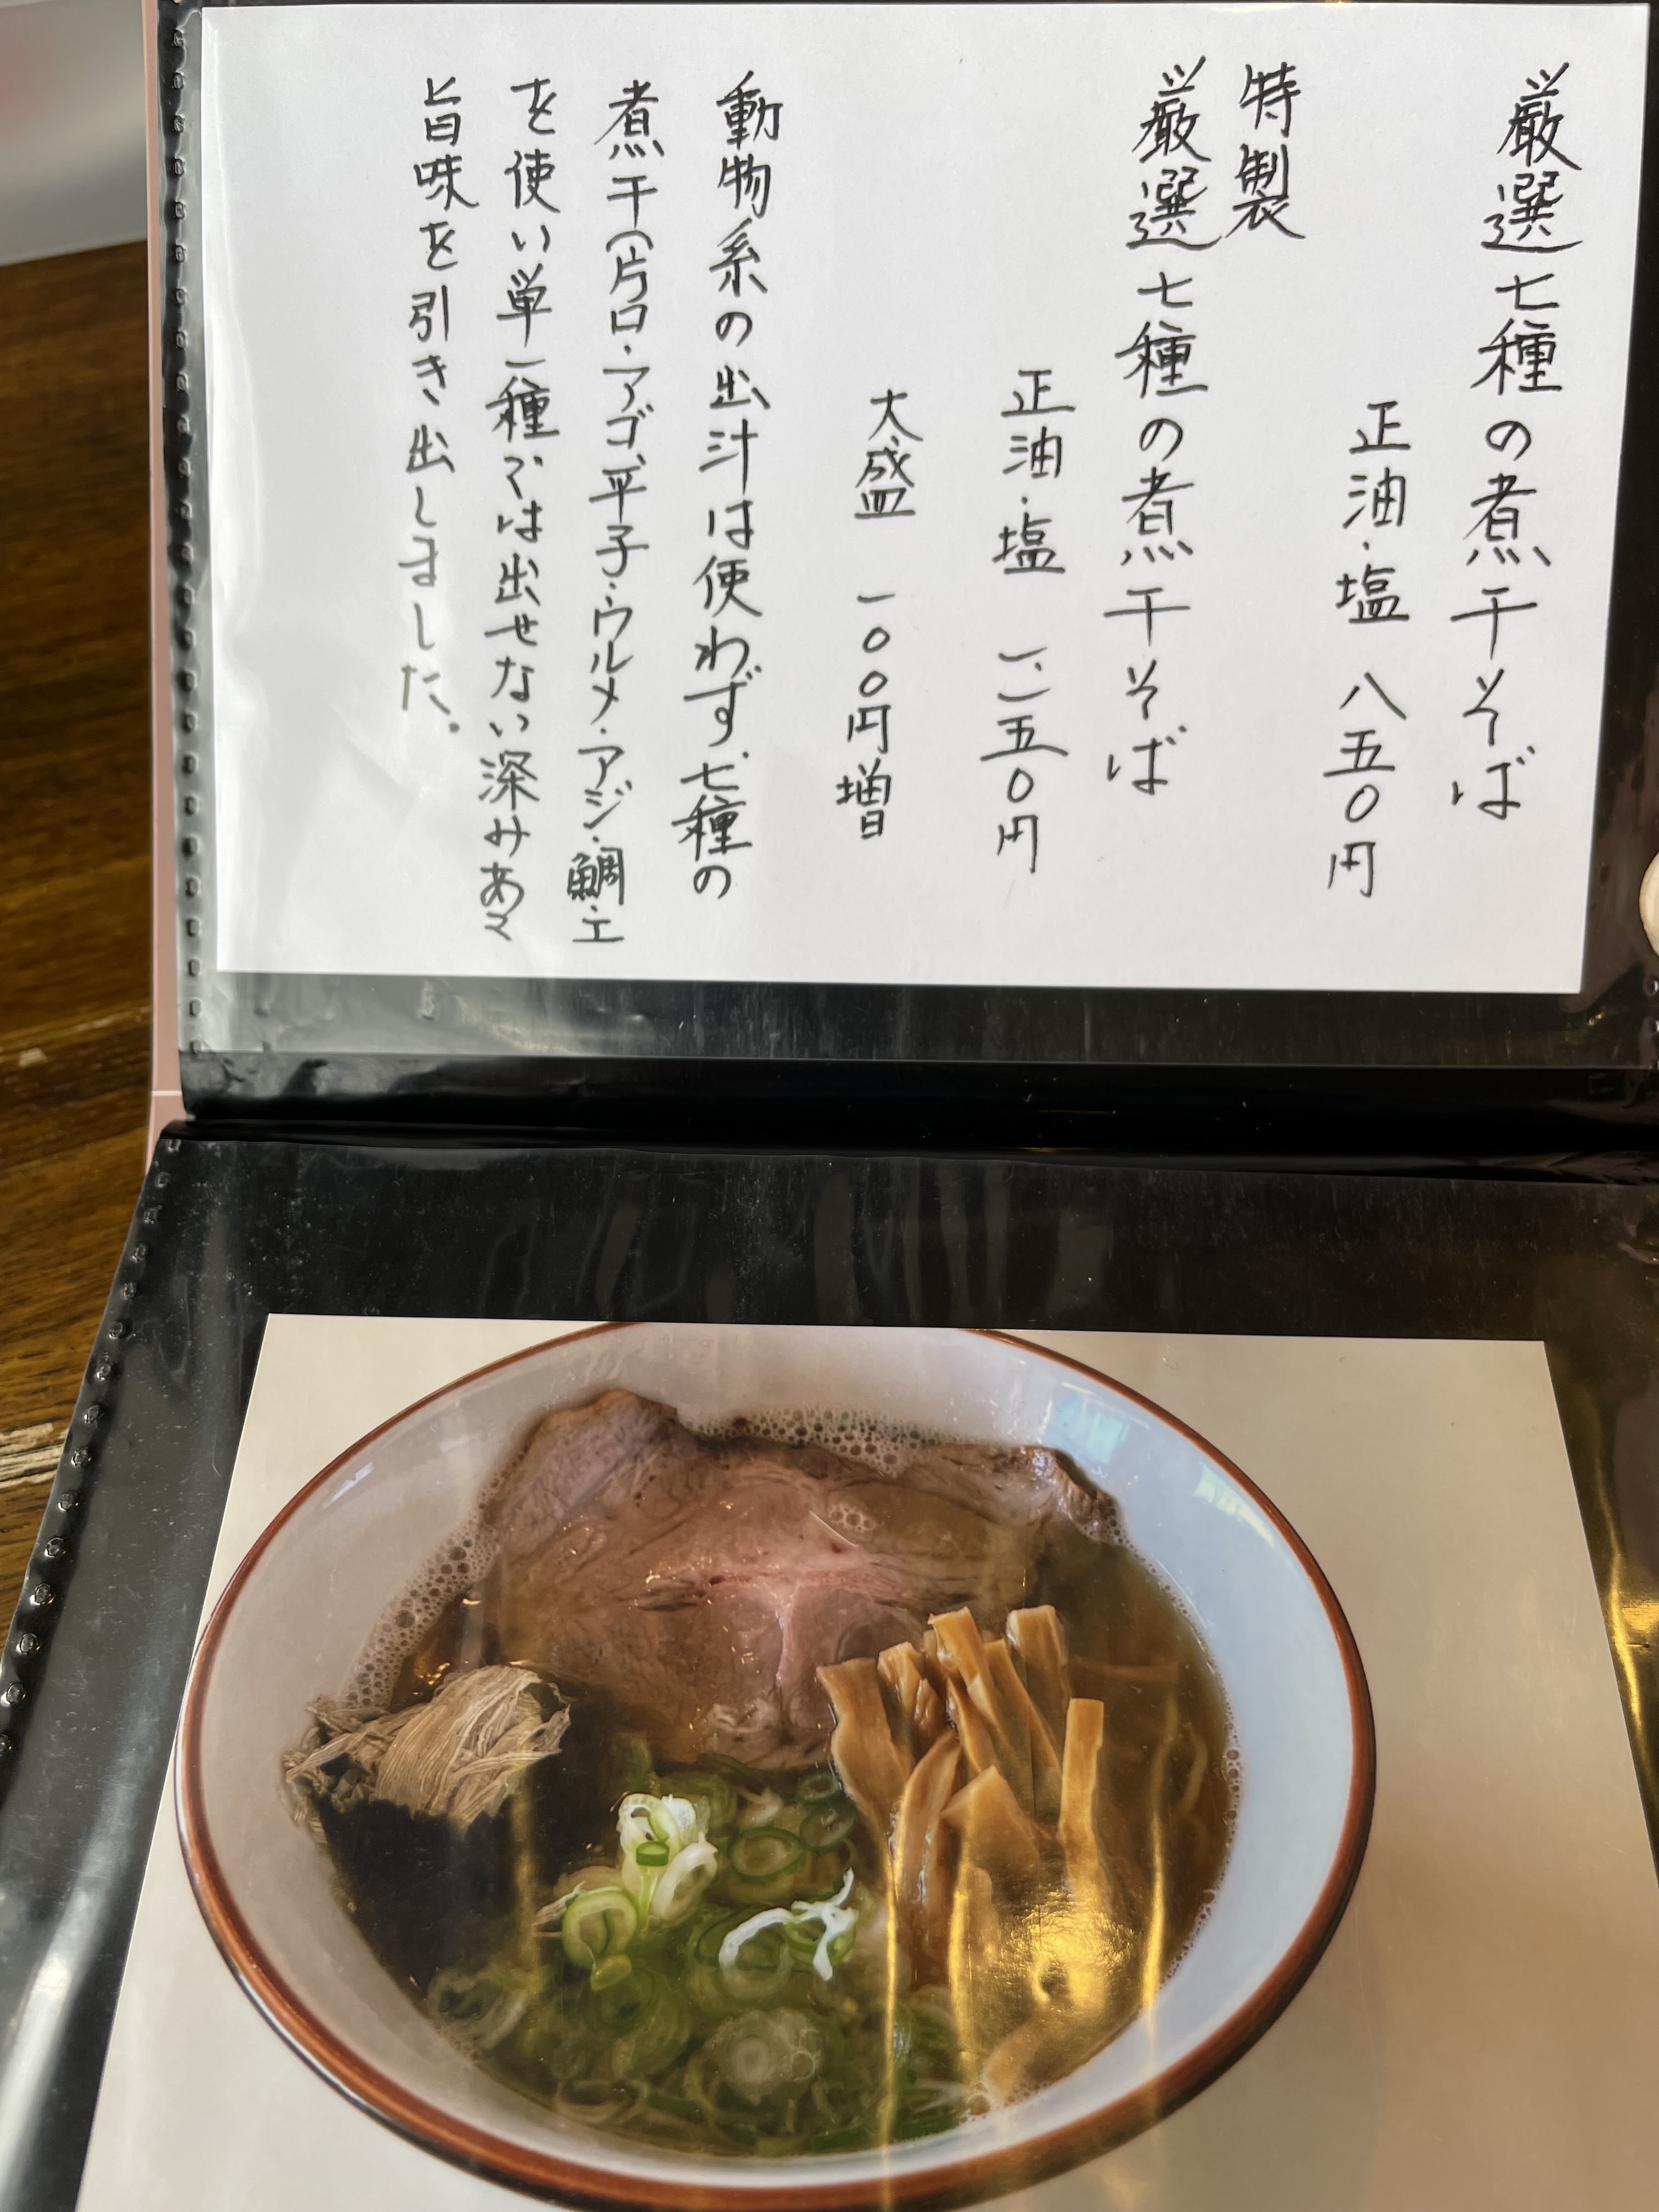 厳選七種の煮干そば
正油・塩 八五〇円
特製
厳選七種の煮干そば
正油・塩 一、一五〇円
大盛 一〇〇円増
動物系の出汁は使わず、七種の
煮干(片口・アゴ、平子・ウルメ・アジ・鯛・エ
を使い単一種では出せない深みある
旨味を引き出しました。